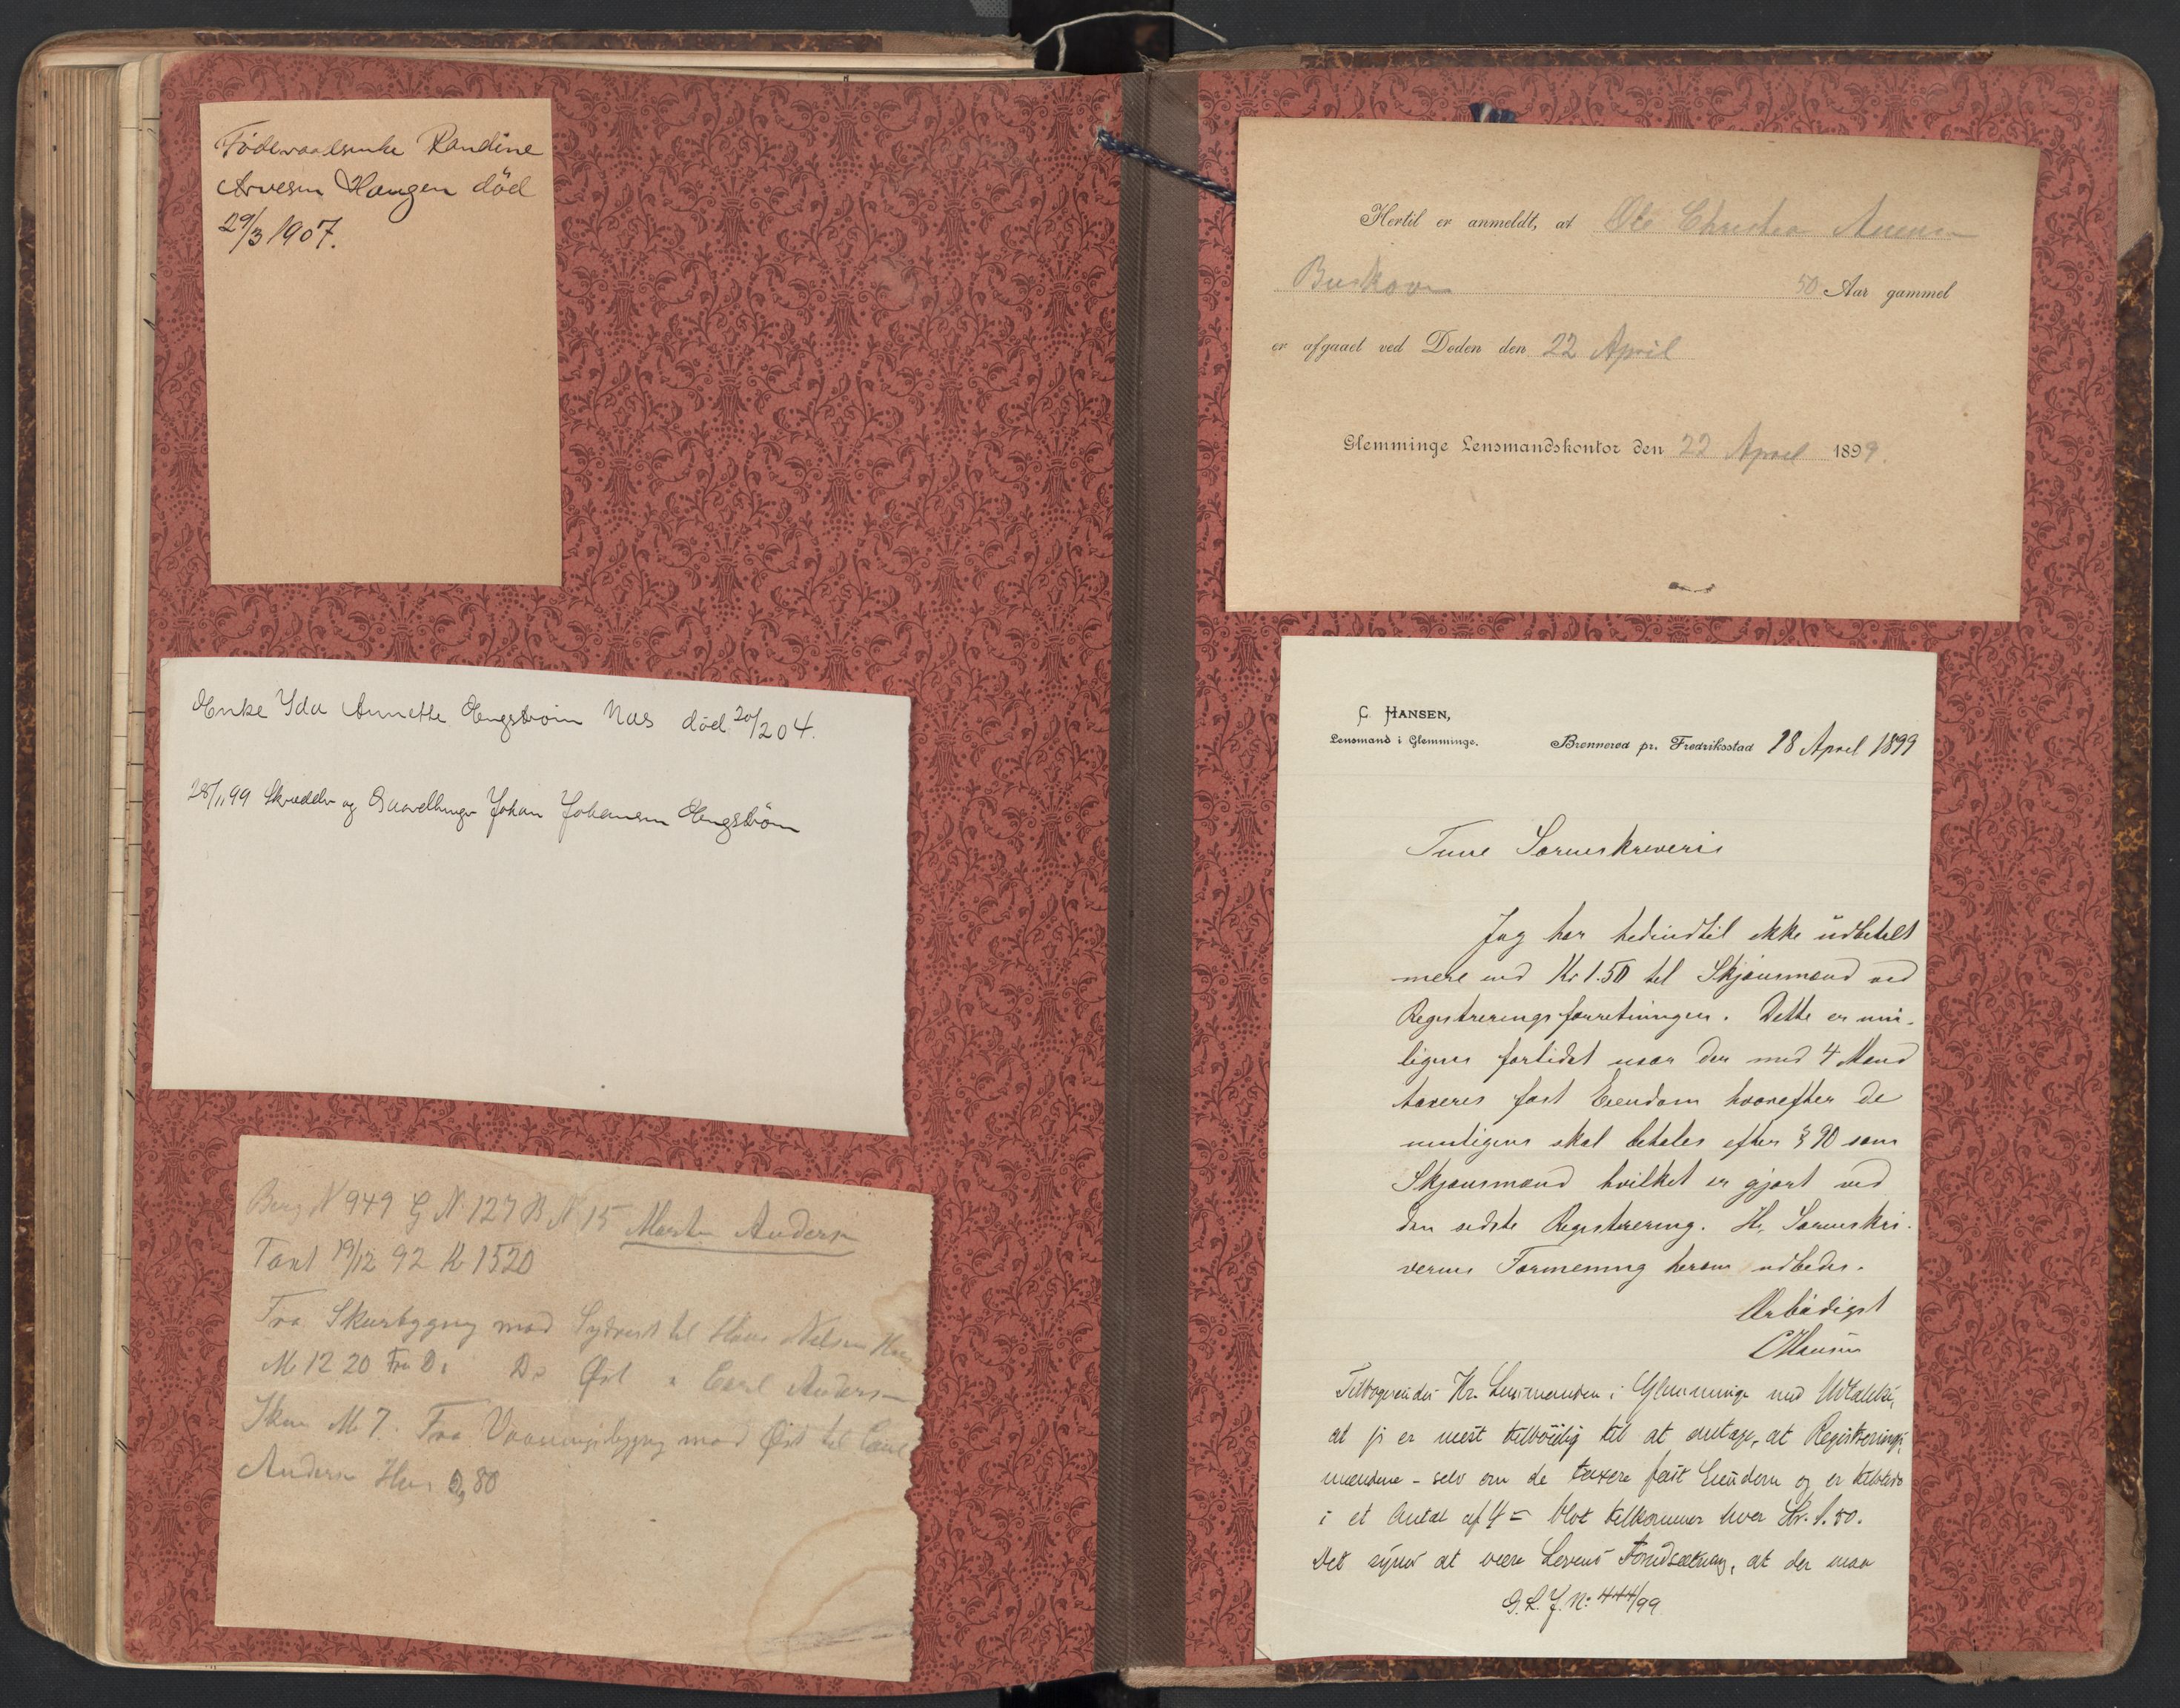 Föderaadsenke Randine
Arvesen Haugen död
29/3 1907.
Enke Ida Annette Engström Næs död 20/2 04.
28/11 99 Skrædder og Gaardbruger Johan Johansen Engström
Berg N 949 G N 127 B N 15 Martin Andersen
Taxt 19/12 92 Kr 1520
Fra Skurbygng mod Sydvest til Hans Nilsen Hus
M 12 20 Fra Do Do Øst " Carl Andersen
Skur M 7. Fra Vaaningsbygng mod Øst til Carl
Andersen Hus 9,80
Hertil er anmeldt, at Ole Christian Arnesen
Buskoven 50 Aar gammel
er afgaaet ved Døden den 22 April
Glemminge Lensmandskontor den 22 April 1899.
C. HANSEN,
Lensmand i Glemminge.
Brønnerød pr. Fredriksstad 18 April 1899
Tune Sorenskriveri
Jeg har hedindtil ikke üdbetalt
mere end Kr 1.50 til Skjönsmænd ved
Registreringsforretninger. Dette er min-
ligens fortidet naar der med 4 Mænd
taxeres fast Eiendom hvorefter de
muligens skal betales efter § 90 som
Skjönsmænd hvilket er gjort ved
den sidste Registrering. Hr. Sorenskri-
verens Formening herom udbedes.
Ærbödigst
CHansen
Tilbagesendes Hr. Lensmanden i Glemminge med Udtalelse,
at jeg er mest tilböielig til at antage, at Registrerings-
mændene - selv om de taxere fast Eiendom og er tilstede
i et Antal af 4 = blot tilkommer hver Kr. 1.50.
Det synes at være Lovens Forudsætning, at der maa
G. L. J. No 444/99